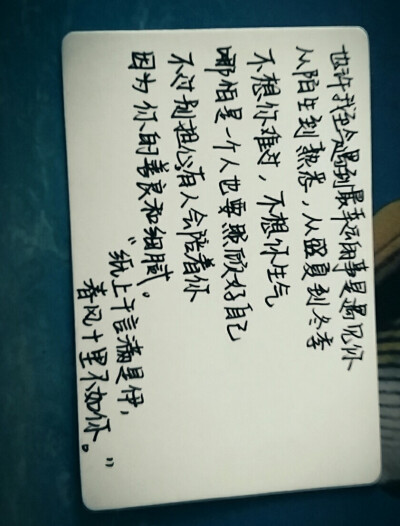 也许我至今遇到最幸运的事是遇见你
从陌生到熟悉，从盛夏到冬季
不想你难过，不想你生气
哪怕是一个人也要照顾好自己
不过别担心有人会陪着你
因为你的善良和细腻。
“纸上千言满是伊，
春风十里不如你。”